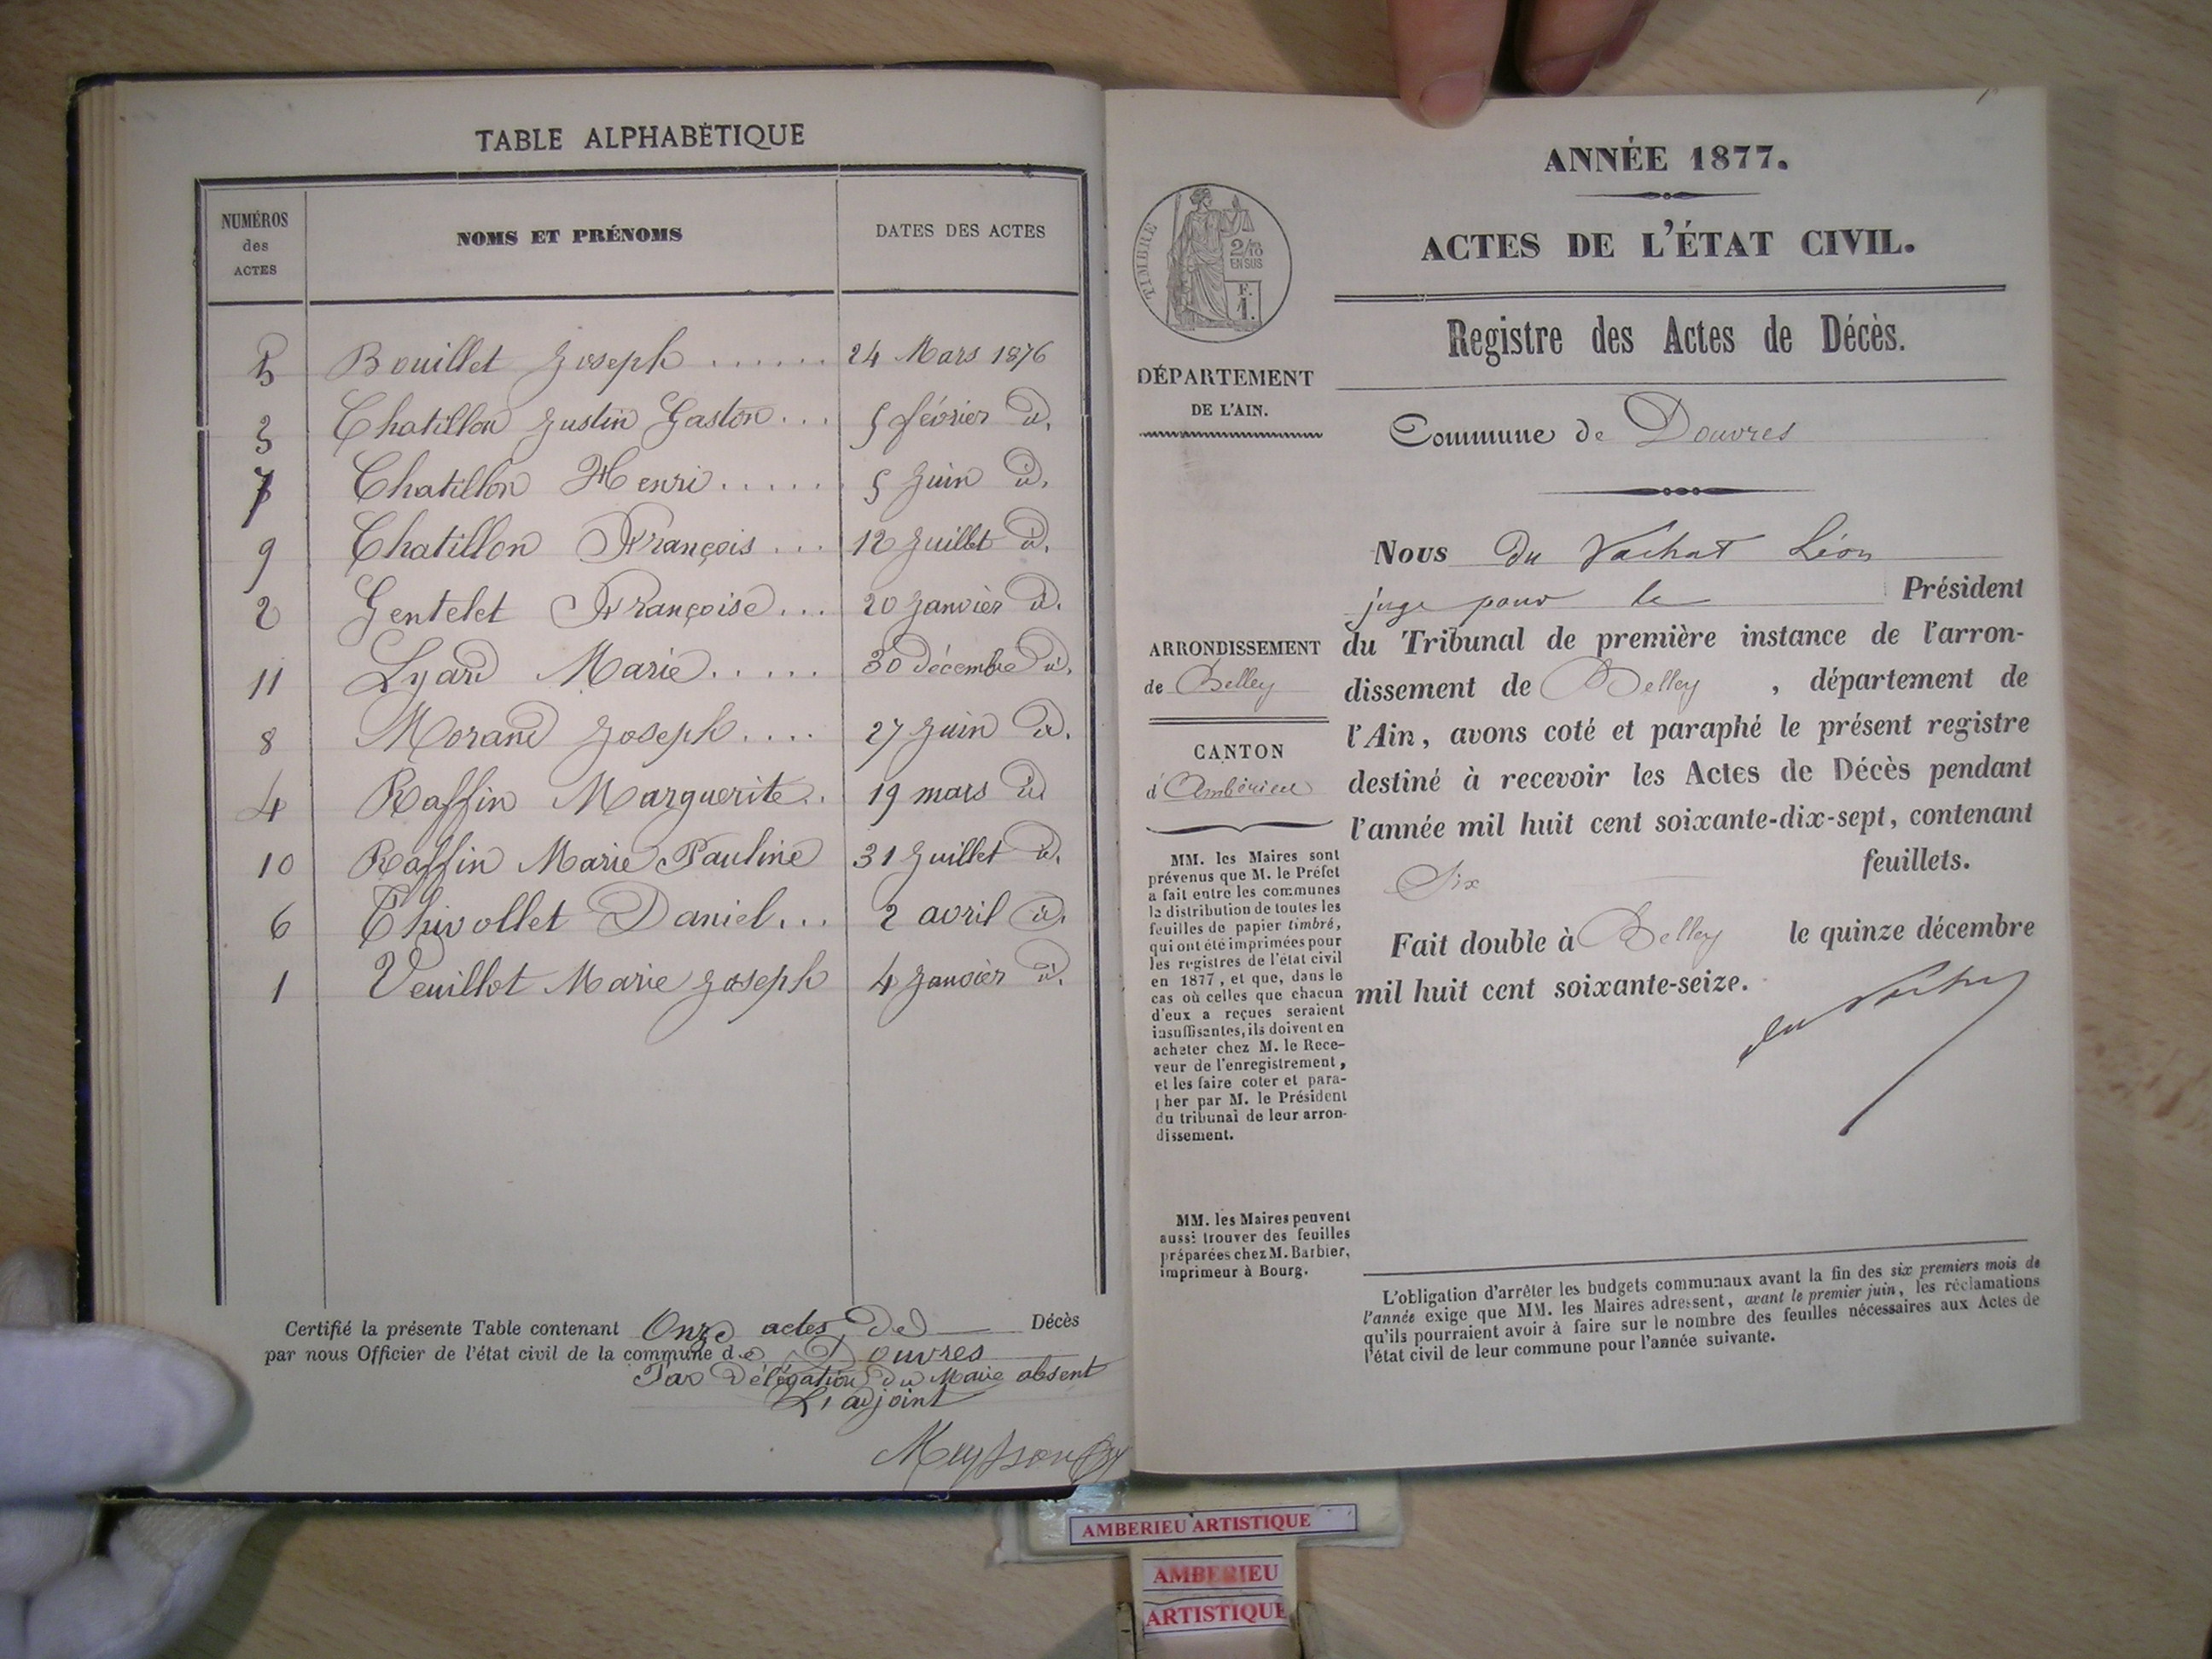 TABLE ALPHABÉTIQUE
NUMÉROS des ACTES NOMS ET PRÉNOMS DATES DES ACTES
5 Bouillet Joseph ...... 24 Mars 1876
3 Chatillon Justin Gaston ... 5 février d.
7 Chatillon Henri ...... 5 Juin d.
9 Chatillon François ... 12 Juillet d.
2 Gentelet Françoise ... 20 Janvier d.
11 Lyard Marie ..... 30 décembre d.
8 Morand Joseph .... 27 Juin d.
4 Raffin Marguerite .. 19 mars d.
10 Raffin Marie Pauline 31 Juillet d.
6 Thivollet Daniel ... 2 avril d.
1 Veuillot Marie Joseph 4 Janvier d.
Certifié la présente Table contenant Onze actes de Décès
par nous Officier de l'état civil de la commune de Douvres
Par délégation du Maire absent
L'adjoint
ANNÉE 1877.
ACTES DE L'ÉTAT CIVIL.
TIMBRE
2/10
EN SUS
F.
1.
Registre des Actes de Décès.
DÉPARTEMENT
DE L'AIN.
Commune de Douvres
Nous du Vachat Léon
juge pour le Président
du Tribunal de première instance de l'arron-
dissement de Belley, département de
l'Ain, avons coté et paraphé le présent registre
destiné à recevoir les Actes de Décès pendant
l'année mil huit cent soixante-dix-sept, contenant
Six feuillets.
Fait double à Belley le quinze décembre
mil huit cent soixante-seize.
du Vachat
ARRONDISSEMENT
de Belley
CANTON
d'Ambérieu
MM. les Maires sont
prévenus que M. le Préfet
a fait entre les communes
la distribution de toutes les
feuilles de papier timbré,
qui ont été imprimées pour
les registres de l'état civil
en 1877, et que, dans le
cas où celles que chacun
d'eux a reçues seraient
insuffisantes, ils doivent en
acheter chez M. le Rece-
veur de l'enregistrement,
et les faire coter et para-
pher par M. le Président
du tribunal de leur arron-
dissement.
MM. les Maires peuvent
aussi trouver des feuilles
préparées chez M. Barbier,
imprimeur à Bourg.
L'obligation d'arrêter les budgets communaux avant la fin des six premiers mois de
l'année exige que MM. les Maires adressent, avant le premier juin, les réclamations
qu'ils pourraient avoir à faire sur le nombre des feuilles nécessaires aux Actes de
l'état civil de leur commune pour l'année suivante.
AMBERIEU ARTISTIQUE
AMBERIEU
ARTISTIQUE